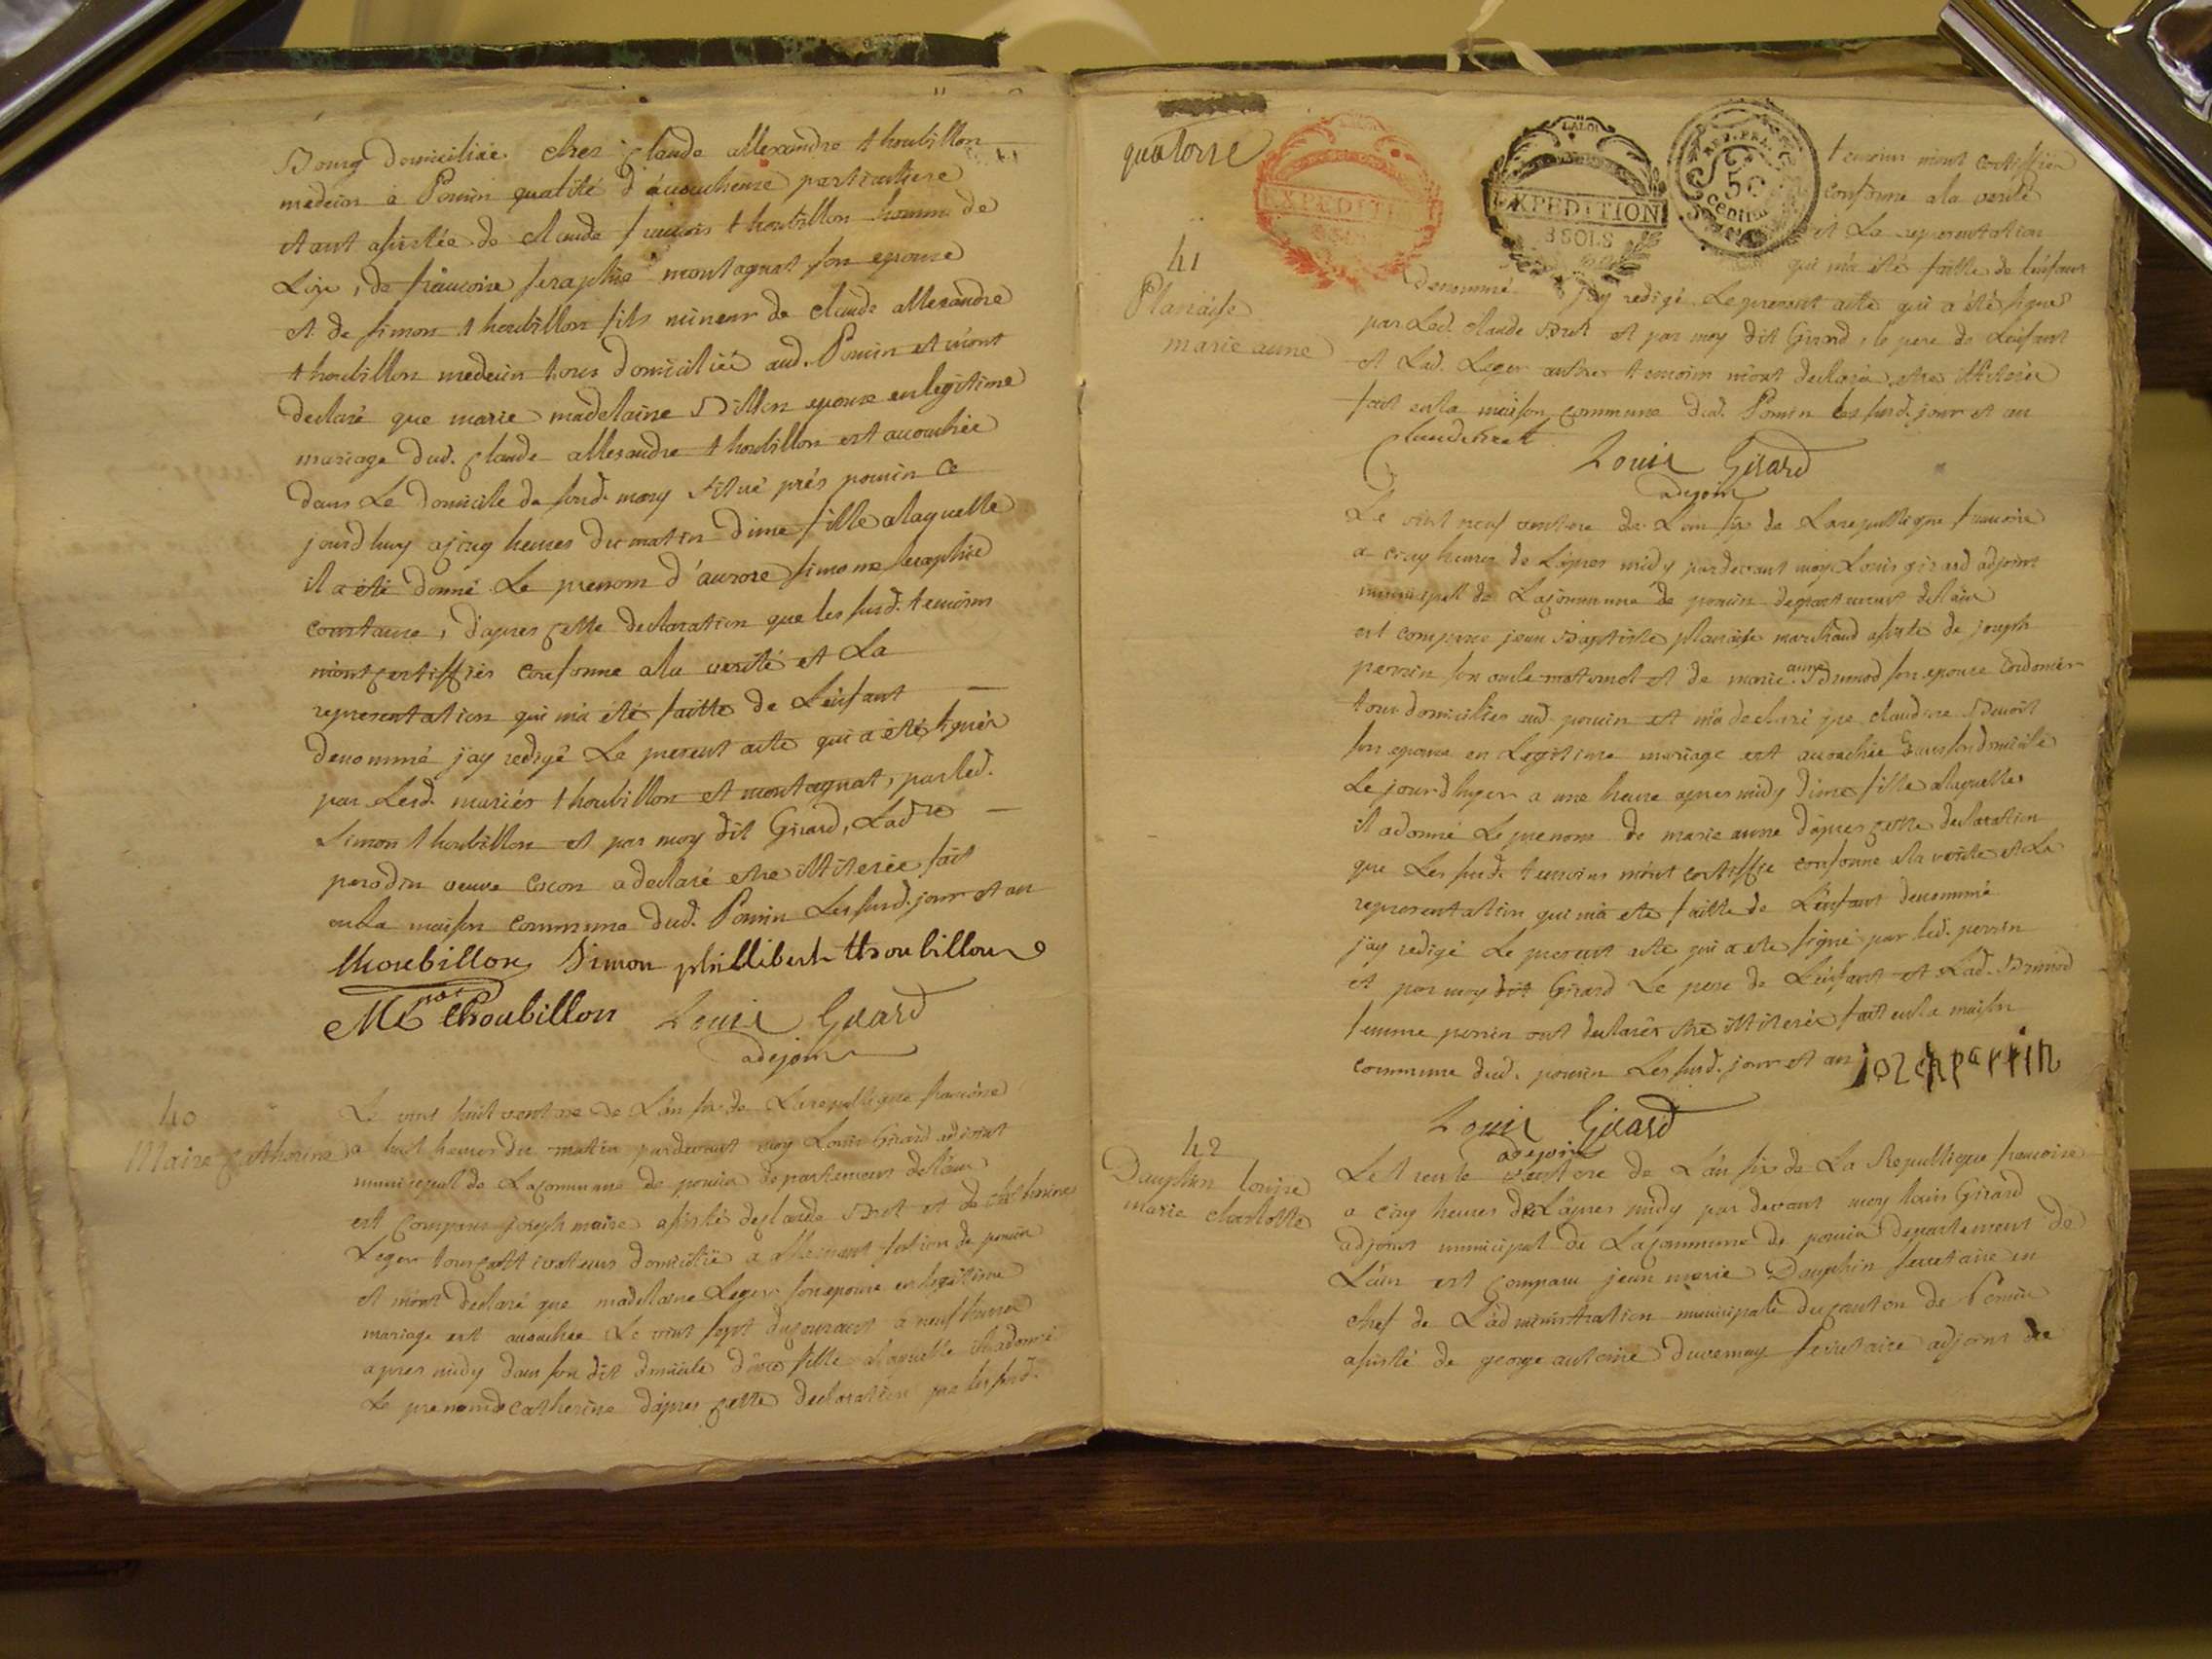 Bourg domiciliée chez Claude allexandre thoubillon
medecin a Poncin qualité d'accoucheuse particuliere
etant assistée de claude francois thoubillon homme de
Loix, de francoise seraphie montagnat son epouse
et de simon thoubillon fils mineur de claude allexandre
thoubillon medecin tous domiciliés aud. Poncin et m'ont
declaré que marie madelaine Dillon epouse en legitime
mariage dud. claude allexandre thoubillon est accouchée
dans Le domicile de sond. mary situé près poncin Ce
jourdhuy a cinq heures du matin d'une fille a laquelle
il a été donné Le prenom d'aurore simonne seraphie
constance, d'apres cette declaration que les susd. temoins
m'ont certiffiés conforme a la verité et La
representation qui m'a été faitte de L'enfant
denommé j'ay redigé Le present acte qui a été signés
par Lesd. mariés thoubillon et montagnat, par led.
Simon thoubillon et par moy dit Girard, Lad.
perodin veuve Cocon a declaré etre illiterée fait
en La maison commune dud. Poncin Les susd. jour et an
thoubillon Simon phillibert thoubillon
thoubillon Louis Girard
adejoin
40
Maire Catherine
Le vint huit ventose de L'an six de La republique francoise
a huit heures du matin pardevant moy Louis Girard adjoint
municipal de La commune de poncin departement de l'ain
est comparu joseph maire assisté de claude Bret et de catherine
Leger tous cultivateurs domiciliés a allement section de poncin
et m'ont declaré que madelaine Leger son epouse en legitime
mariage est accouchée Le vint sept du courant a neuf heures
apres midy dans son dit domicile d'une fille a laquelle il a donné
Le prenom de catherine d'apres cette declaration que les susd.
quatorse
LA LOI
EXPEDITION
LA LOI
EXPEDITION
3 SOLS
REP. FRA.
50
CENTIM
temoins m'ont certiffiée
conforme a la verité
et La representation
qui m'a été faitte de l'enfant
denommé j'ay redigé Le present acte qui a été signé
par Led. claude Bret et par moy dit Girard, le pere de L'enfant
et Lad. Leger autres temoin m'ont declaré etre illiterés
fait en la maison commune dud. Poncin les susd. jour et an
Claude bret Louis Girard
adejoin
41
Planaise
marie anne
Le vint neuf ventose de L'an six de La republique francoise
a cinq heures de L'apres midy pardevant moy Louis girard adjoint
municipal de La commune de poncin departement de l'ain
est comparu jean Baptiste planaise marchand assisté de joseph
perrin son oncle maternel et de marie anne Brunod son epouse Cordonier
tous domiciliés aud. poncin et m'a declaré que claudine Benoit
son epouse en Legitime mariage est accouchée dans son domicile
Le jourd'hyer a une heure apres midy d'une fille a laquelle
il a donné Le prenom de marie anne d'apres cette declaration
que Les susd. temoins m'ont certiffié conforme a la verité et La
representation qui m'a eté faitte de L'enfant denommé
j'ay redigé Le present acte qui a eté signé par led. perrin
et par moy dit Girard Le pere de L'enfant et Lad. Brunod
femme perrin ont declarés etre illiterés fait en la maison
commune dud. poncin Les susd. jour et an joz
Louis Girard
adejoin
42
Dauphin louise
marie charlotte
Le trente ventose de L'an six de La Republique francoise
a cinq heures de L'apres midy par devant moy louis Girard
adjoint municipal de La commune de poncin departement de
L'ain est comparu jean marie Dauphin secretaire en
chef de L'administration municipale du canton de Poncin
assisté de george antoine Duvernay secretaire adjoint de